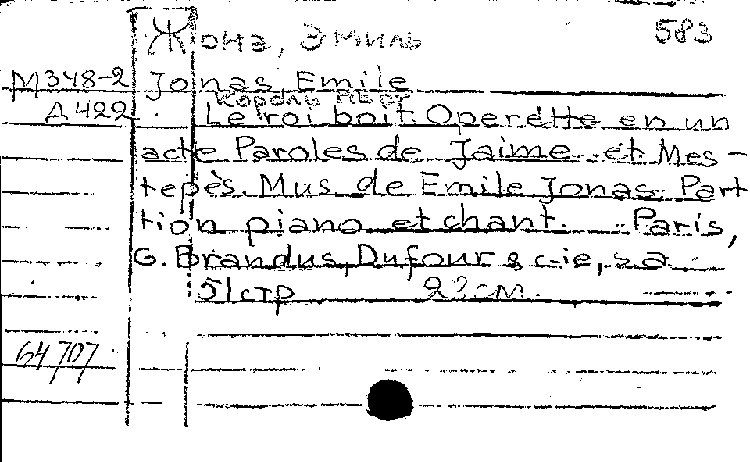 Жона, Эмиль 583
М348-2 Jonas Emile
Король пьёт
Д422 Le roi boit. Operette en un
acte Paroles de Jaime et Mes-
tepès. Mus. de Emile Jonas. Part
tion piano et chant. Paris,
G. Brandus, Dufour & cie, s.a.
51 стр 22 см.
64707